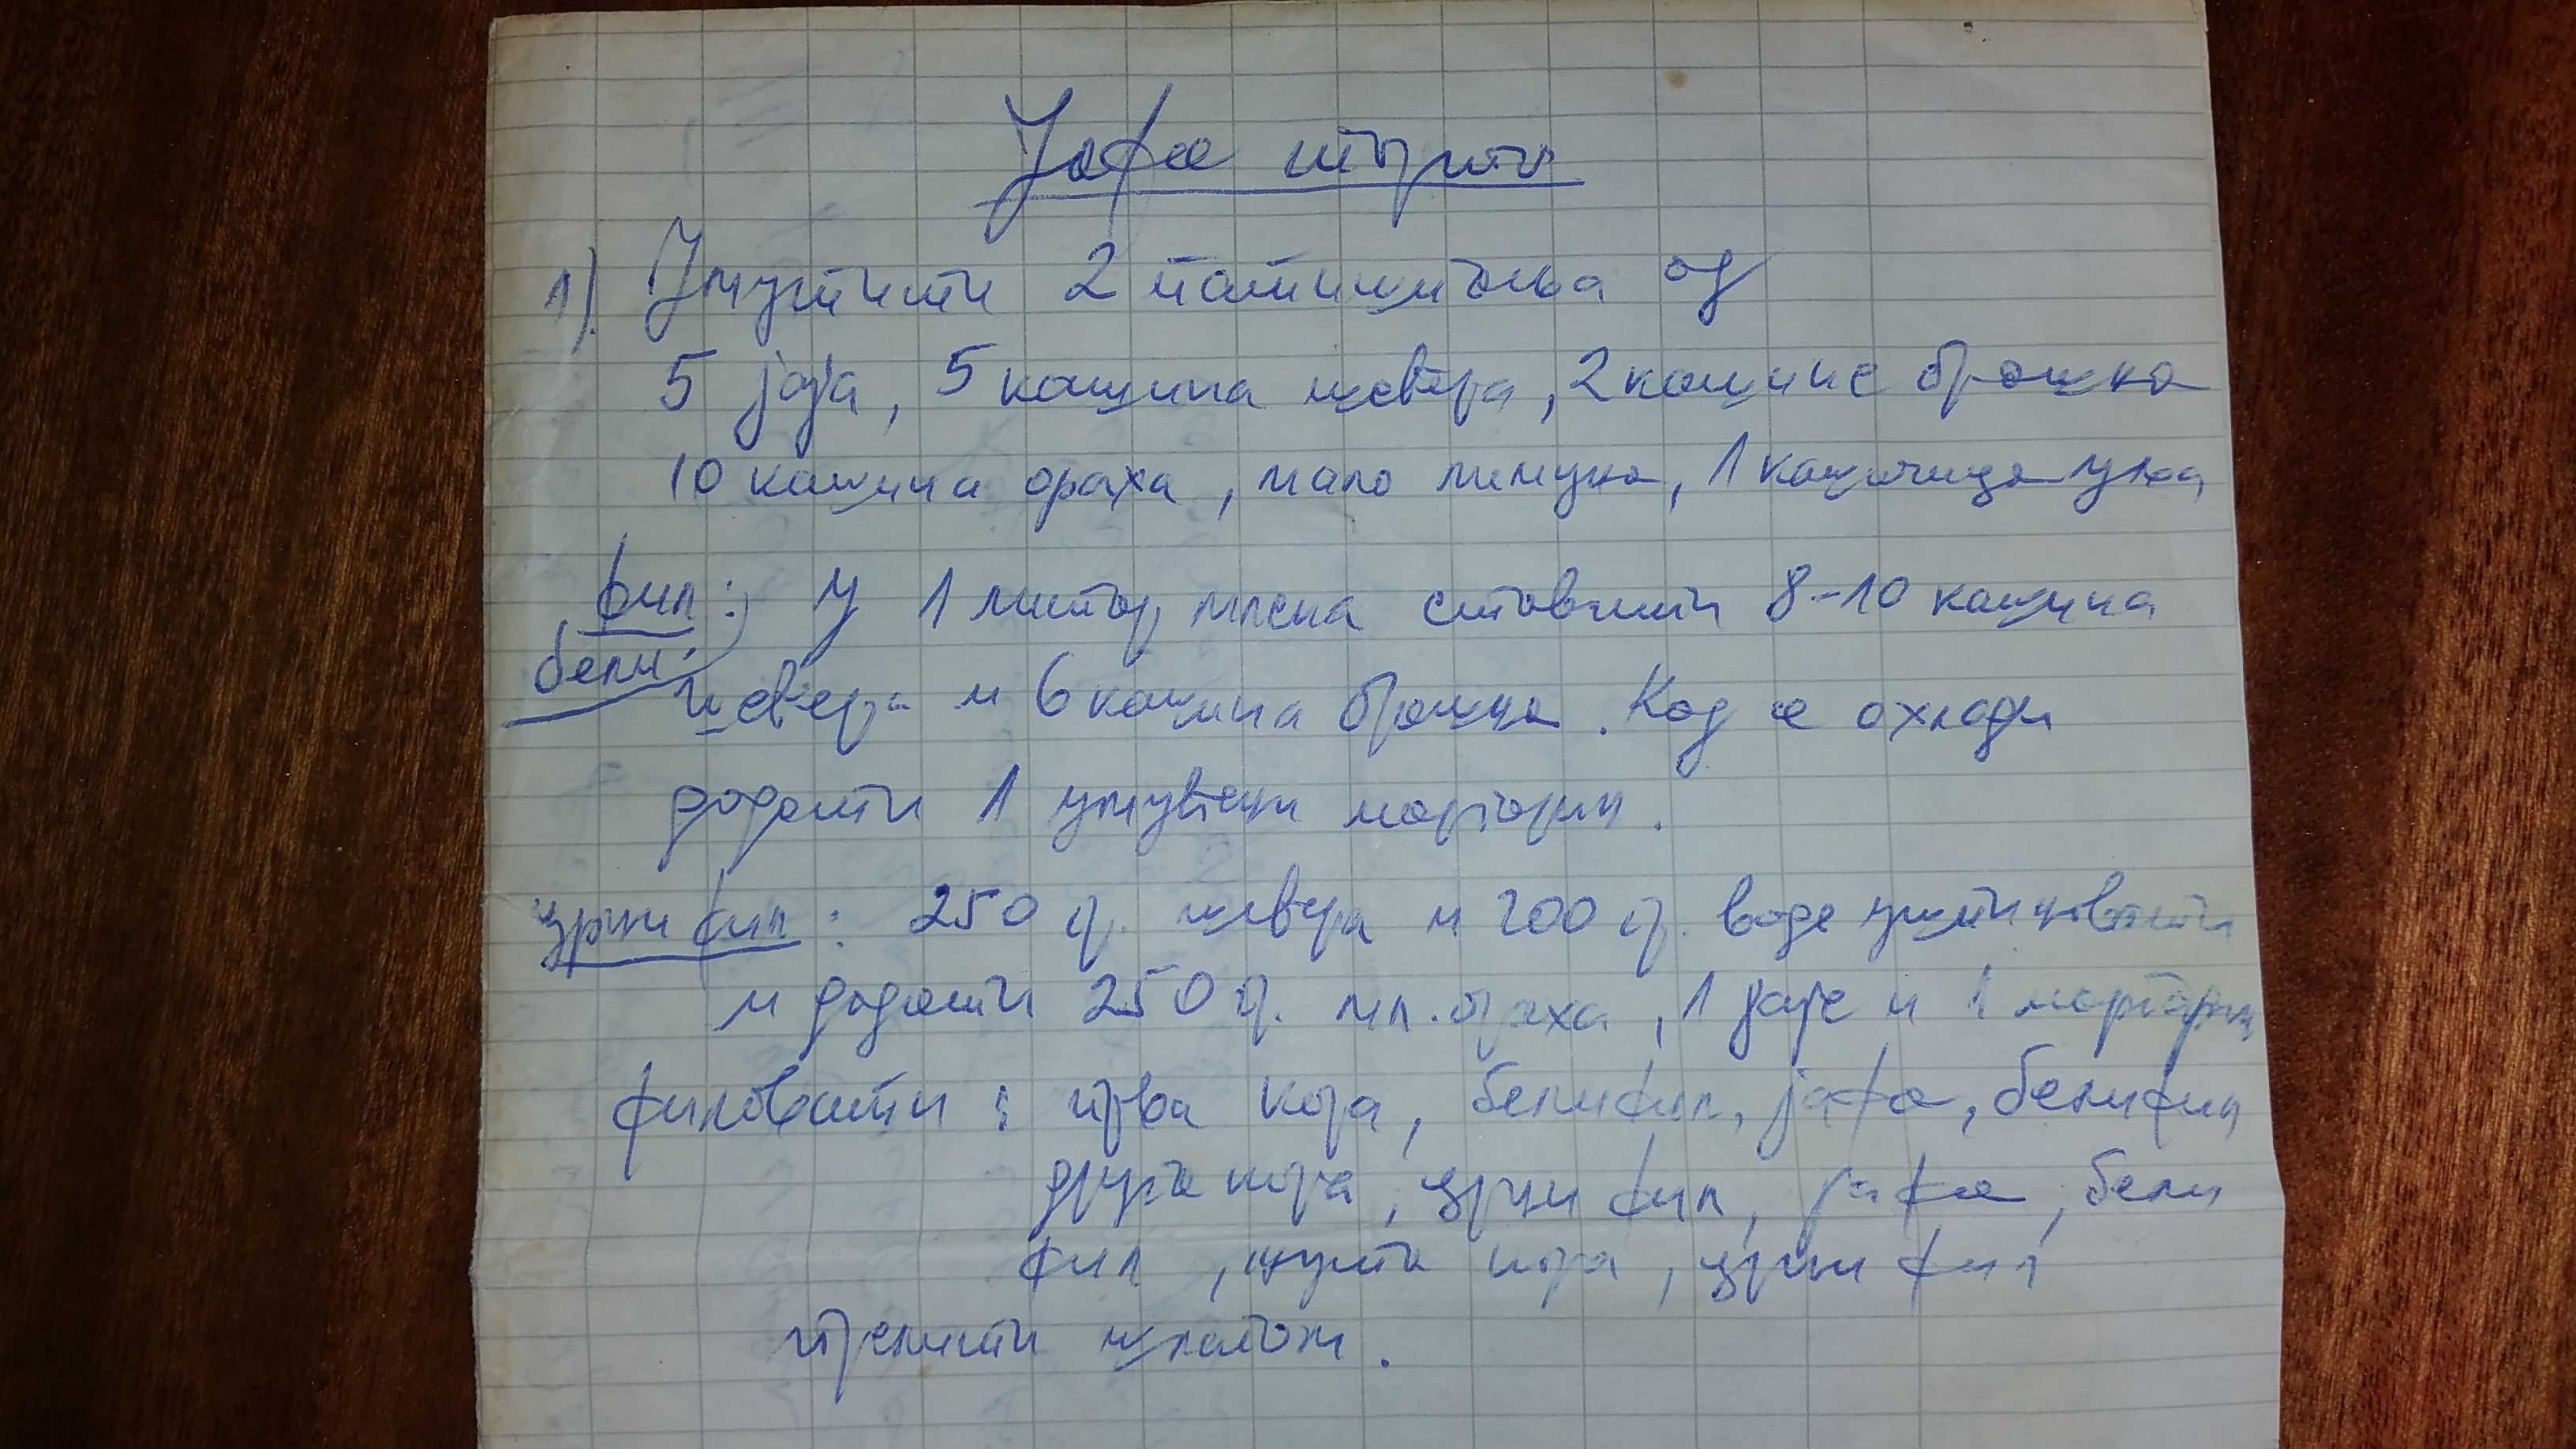 Јафа торта
1) Умутити 2 патишпања од
5 јаја, 5 кашика шећера, 2 кашике брашна
10 кашика ораха, мало лимуна, 1 кашичица уља
фил: У 1 литар млека ставити 8-10 кашика
бели:
шећера и 6 кашика брашна. Кад се охлади
додати 1 умућени маргарин.
црни фил: 250 гр. шећера и 200 гр. воде ушпиновати
и додати 250 гр. мл. ораха, 1 јаје и 1 маргарин
филовати: прва кора, бели фил, јафа, бели фил
друга кора, црни фил, јафа, бели
фил, жута кора, црни фил
прелити шлагом.